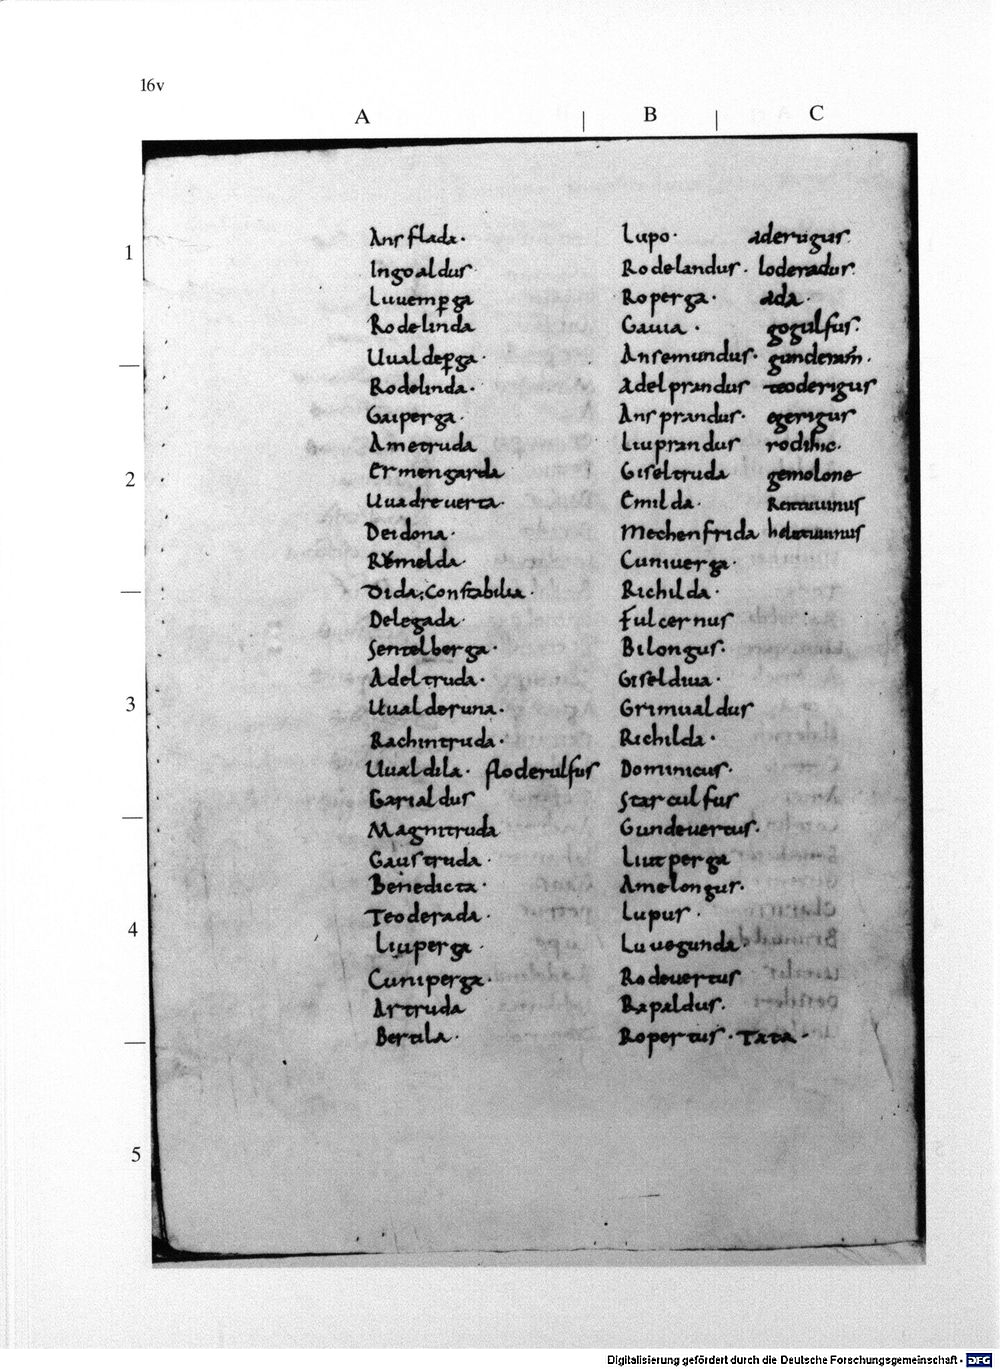 16v
A | B | C
1
2
3
4
5
Ansflada·
Ingoaldus
Luuemꝑga
Rodelinda
Uualdeꝑga·
Rodelinda·
Gaiperga·
Ametruda
Ermengarda
Uuadreuerta·
Deidona·
Remelda·
Dida; Constabilia·
Delegada·
Sentelberga·
Adeltruda·
Uualderuna·
Rachintruda·
Uualdila· floderulfus
Garialdus
Magnitruda
Gaustruda·
Benedicta·
Teoderada·
Liuperga·
Cuniperga·
Artruda
Bertila·
Lupo·
Rodelandus·
Roperga·
Gauia·
Ansemundus·
Adelprandus
Ansprandus·
Liuprandus
Giseltruda
Emilda·
Mechenfrida
Cuniuerga·
Richilda·
Fulcernus
Bilongus·
Giseldiua·
Grimualdus
Richilda·
Dominicus·
Starculfus
Gundeuertus·
Liutperga
Amelongus·
Lupus·
Luuegunda·
Rodeuertus
Rapaldus·
Ropertus· Tata·
aderigus
loderadus·
ada·
gogulfus·
gunderam·
teoderigus
egerigus
rodihic·
gemolone
Digitalisierung gefördert durch die Deutsche Forschungsgemeinschaft - DFG